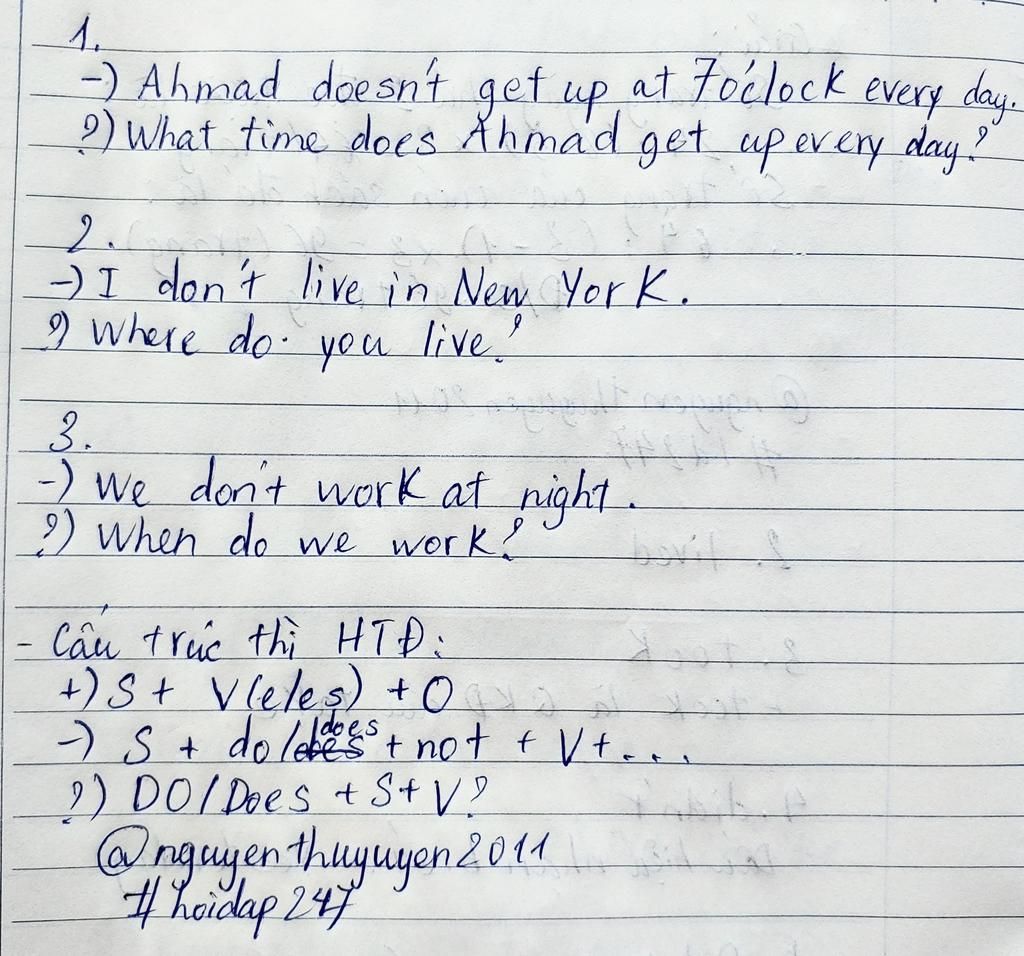 1.
-) Ahmad doesn't get up at 7 o'clock every day.
?) What time does Ahmad get up every day?
2.
-) I don't live in New York.
?) Where do you live?
3.
-) We don't work at night.
?) When do we work?
- Cấu trúc thì HTĐ:
+) S + V(e/es) + O
-) S + do/does + not + V + ...
?) DO/Does + S + V?
@nguyenthuyuyen2011
#hoidap247